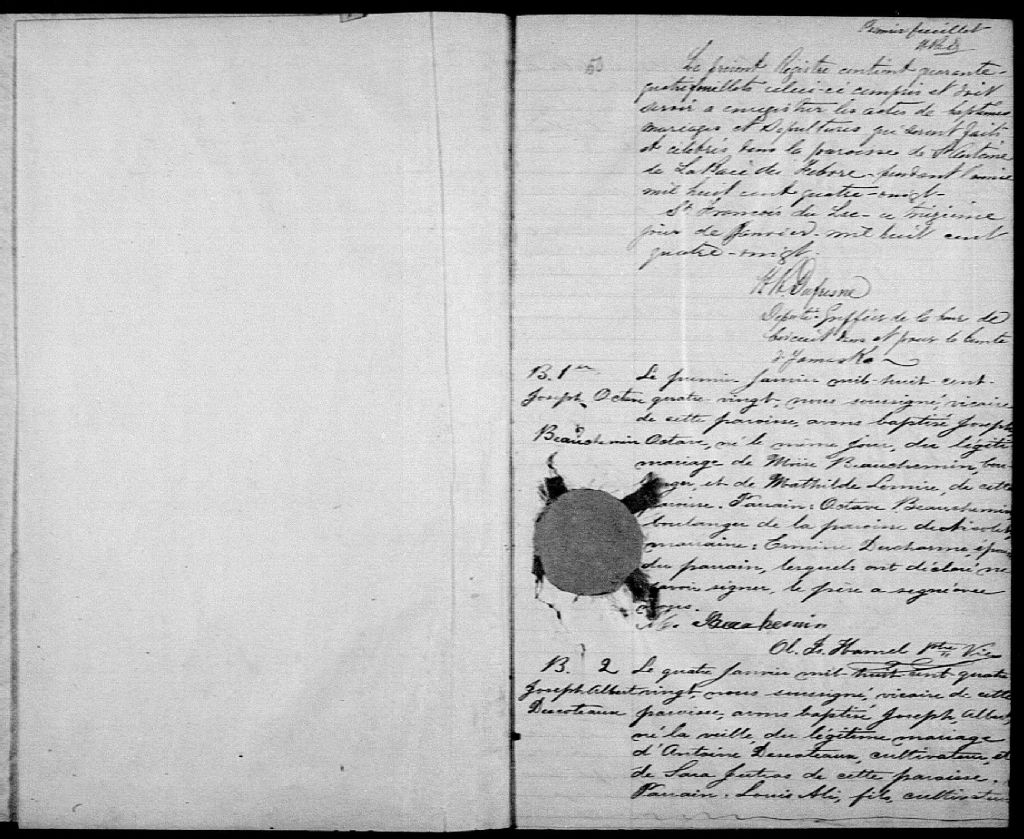 Premier feuillet
Le présent Régistre contient quarante-
quatre feuillets celui-ci compris et doit
servir a enregistrer les actes de baptêmes
mariages et Sépultures qui seront faits
et célébrés dans la paroisse de St Antoine
de La Baie du Febvre - pendant l'année
mil huit cent quatre-vingt-
St François du Lac - ce treizième
jour de Janvier - mil huit cent
quatre-vingt.
Dufresne
Député-Greffier de la Cour de
Circuit dans et pour le Comté
d'Yamaska
B. 1er
Joseph Octave
Beauchemin
Le premier Janvier mil-huit-cent-
quatre-vingt, nous soussigné, vicaire
de cette paroisse, avons baptisé Joseph
Octave, né le même jour, du légiti
mariage de Moïse Beauchemin, bou-
langer, et de Mathilde Lemire, de cette
paroisse. Parrain: Octave Beauchemin
boulanger de la paroisse de Nicolet,
marraine: Ermine Ducharme, épouse
du parrain, lesquels ont déclaré ne
savoir signer, le père a signé avec
nous.
M. Beauchemin
Ol. Is. Hamel Ptre Vic
B. 2
Joseph Albert
Descoteaux
Le quatre Janvier mil-huit-cent-quatre
vingt, nous soussigné, vicaire de cette
paroisse, avons baptisé Joseph, Albert,
né la veille du légitime mariage
d'Antoine Descoteaux, cultivateur, et
de Sara Jutras de cette paroisse.
Parrain: Louis Ali, fils, cultivateur